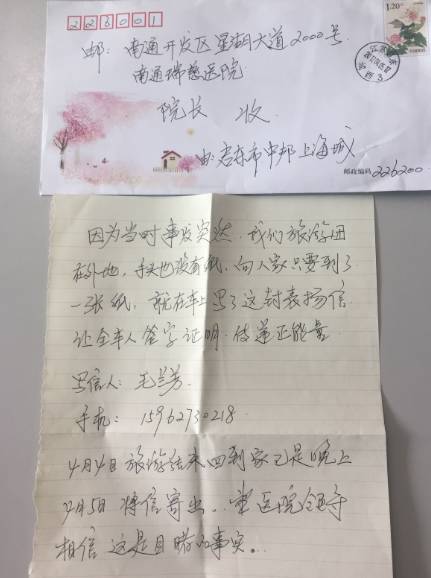 226001
1.20元
邮: 南通开发区星湖大道2000号
南通瑞慈医院
院长 收
由: 启东市中邦上海城
邮政编码 226200
因为当时事发突然,我们旅游团
在外地,手头也没有纸,向人家只要到了
一张纸,就在车上写了这封表扬信
让全车人签字证明,传递正能量
写信人: 毛兰芳
手机: 15962730218
4月4日旅游结束回到家已是晚上
4月5日将信寄出..望医院领导
相信这是目睹的事实..